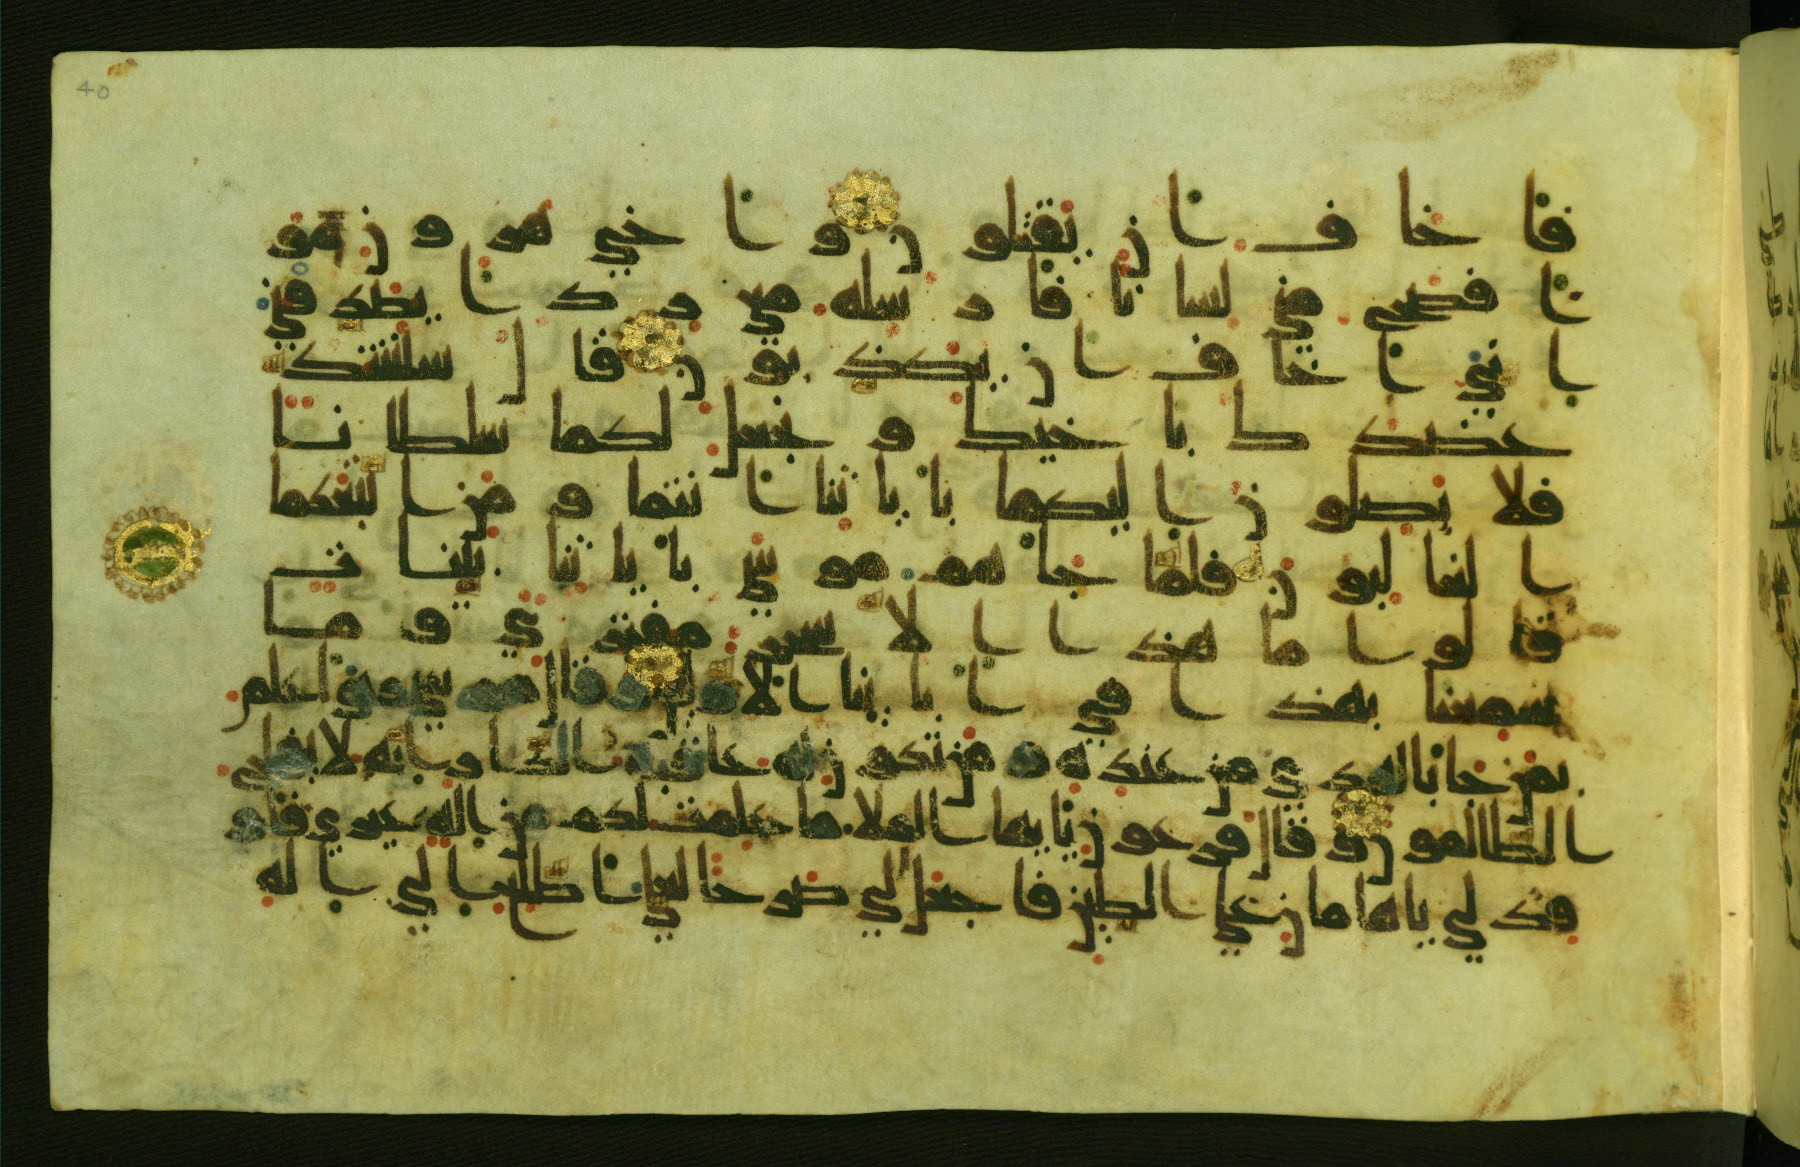 40
فاخاف ان يقتلون واخي هرون هو
افصح مني لسانا فارسله معي ردا يصدقني
اني اخاف ان يكذبون قال سنشد
عضدك باخيك ونجعل لكما سلطانا
فلا يصلون اليكما باياتنا انتما ومن اتبعكما
الغلبون فلما جاهم موسى باياتنا بينات
قالوا ما هذا الا سحر مفترى وما
سمعنا بهذا في ابائنا الاولين وقال موسى ربي اعلم
بمن جا بالهدى من عنده ومن تكون له عاقبة الدار انه لا يفلح
الظالمون وقال فرعون يايها الملا ما علمت لكم من اله غيري فاو
قد لي ياهامان على الطين فاجعل لي صرحا لعلي اطلع الى اله